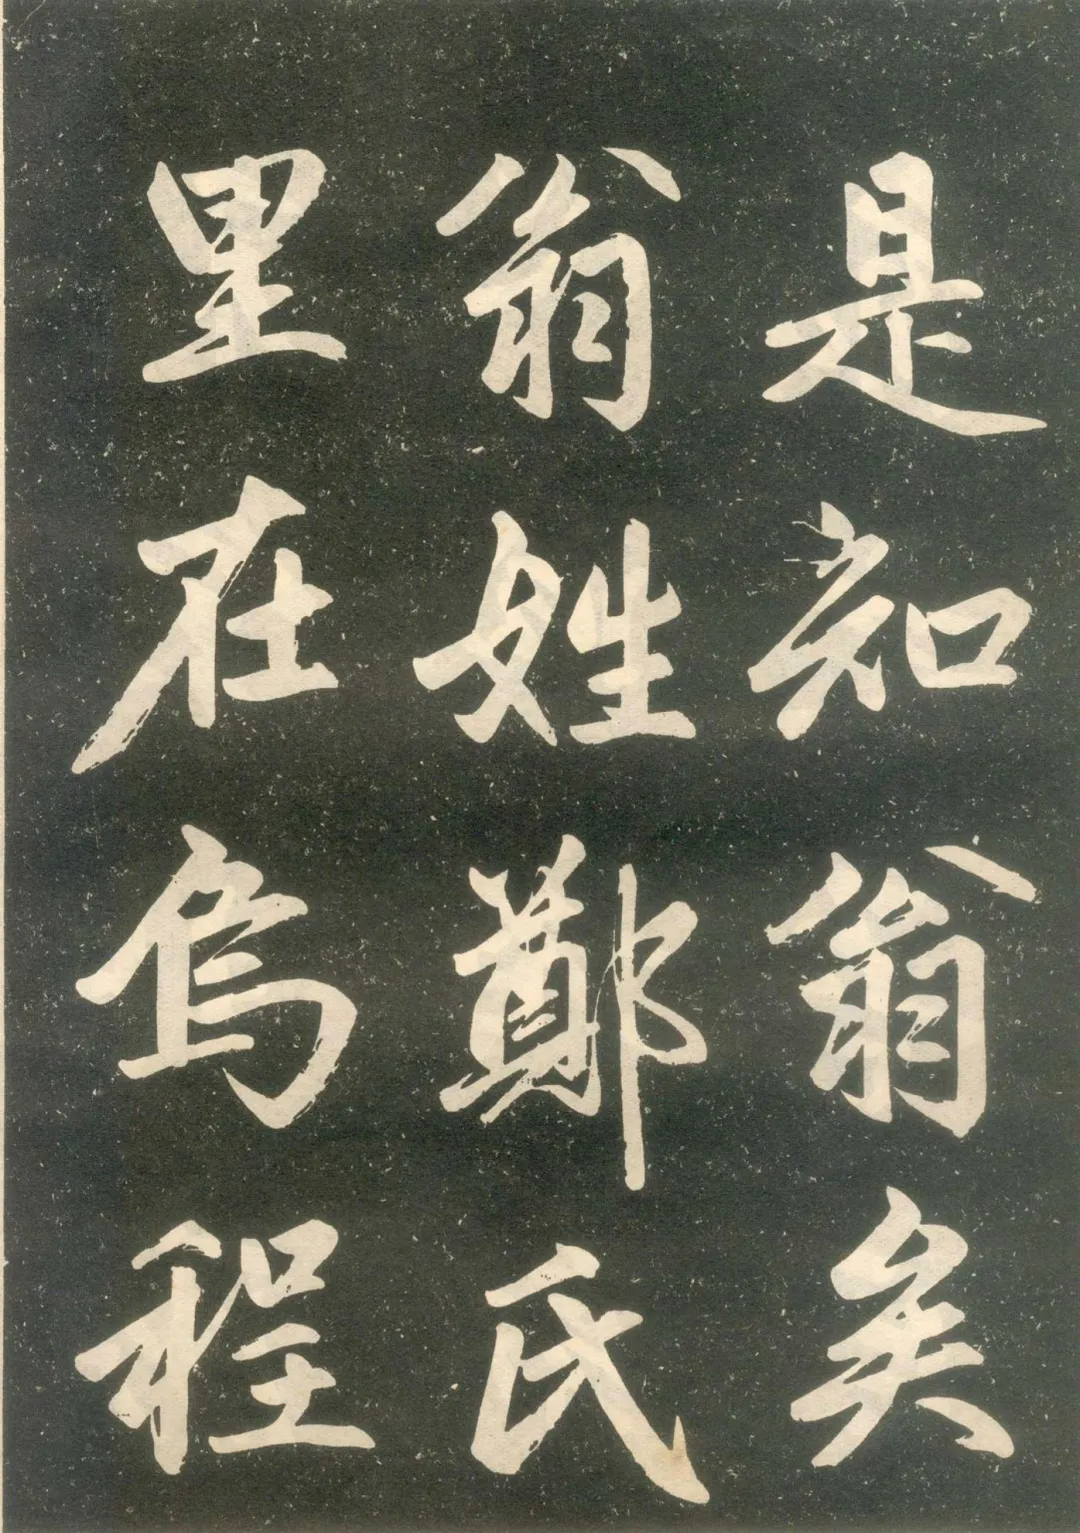 是知翁矣
翁姓鄭氏
里在烏程